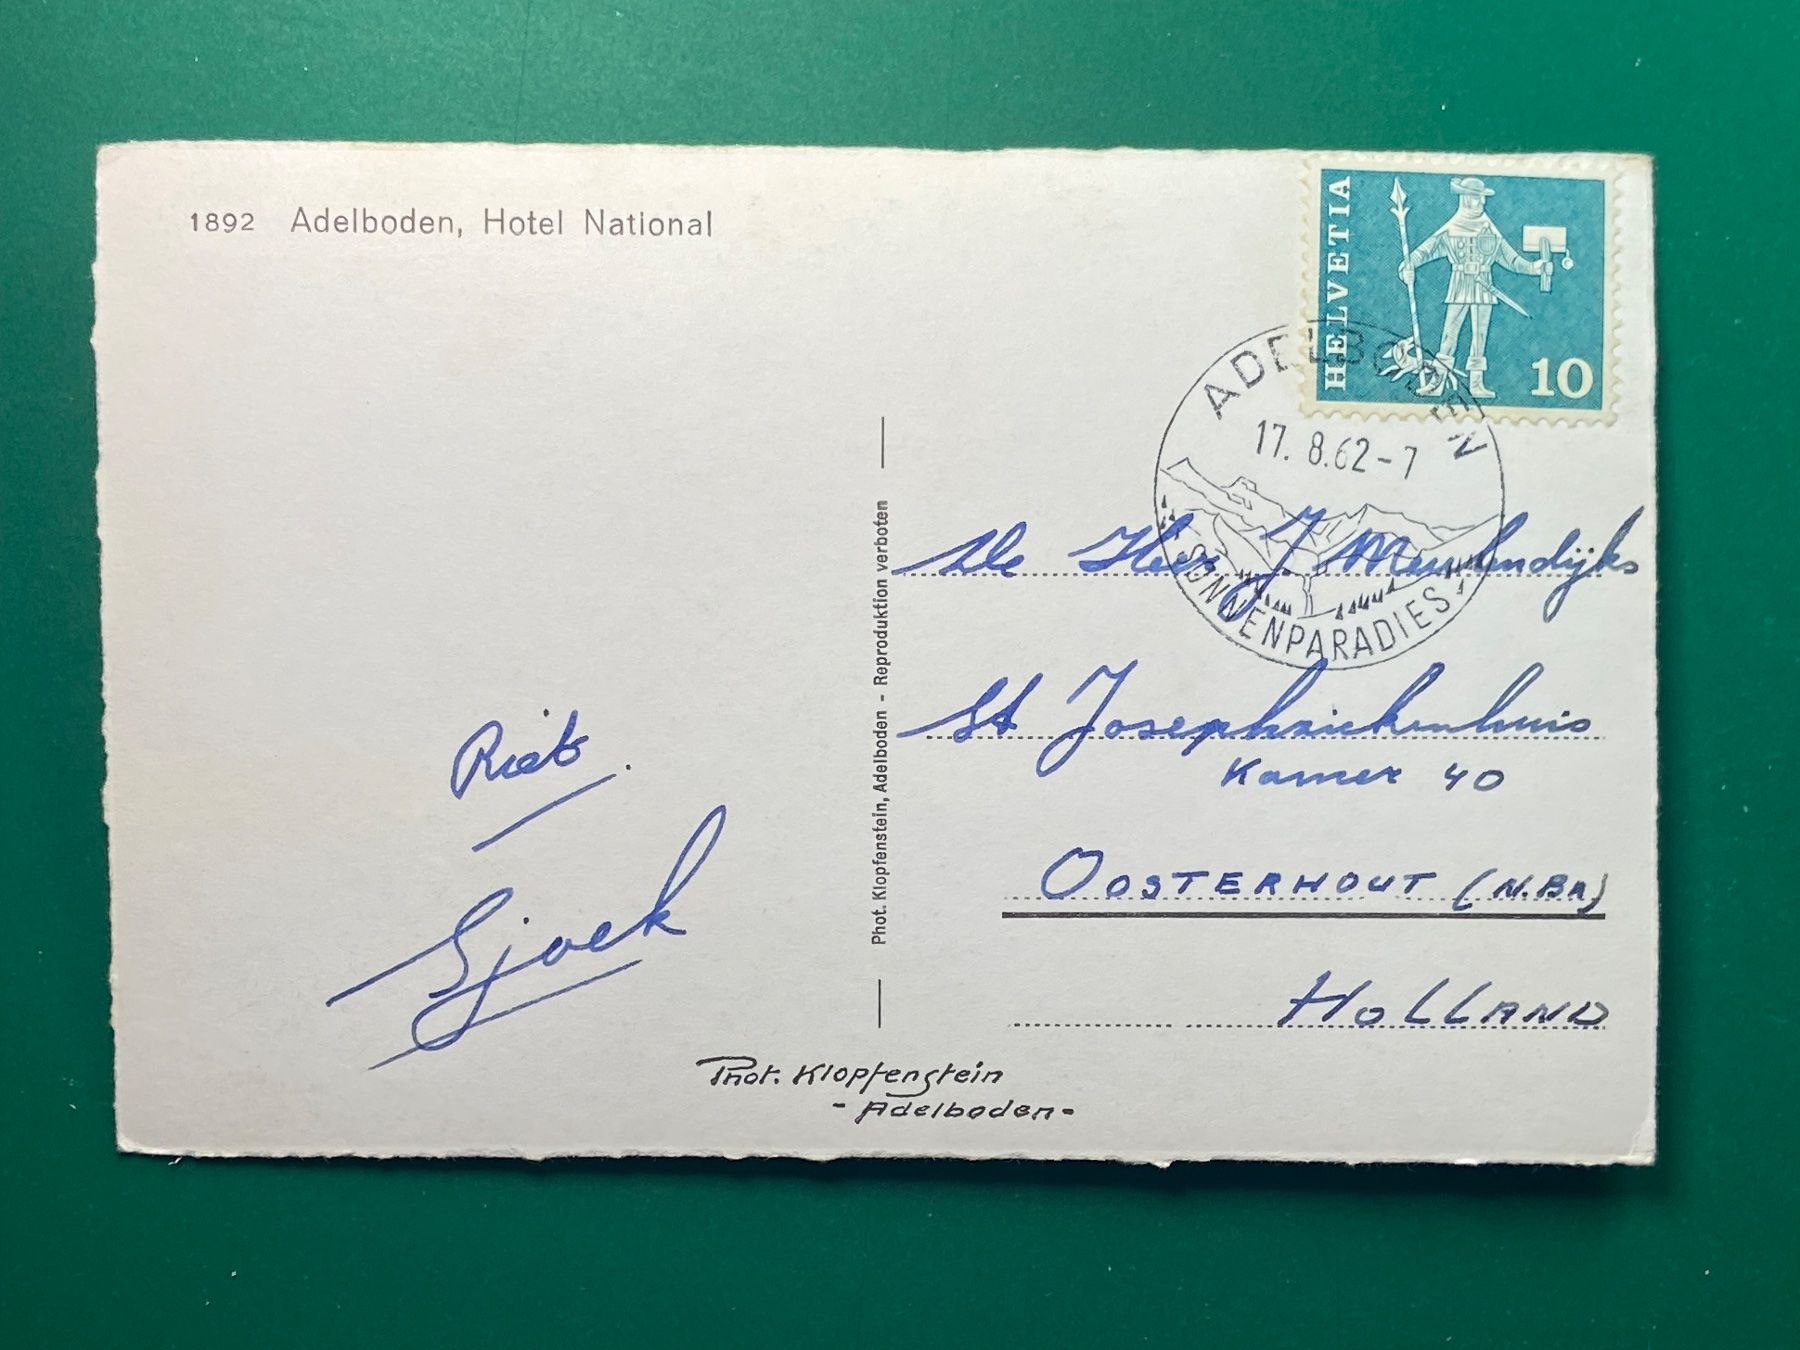 1892 Adelboden, Hotel National
HELVETIA
10
ADELBODEN
17. 8.62-7
SONNENPARADIES
De Heer J Meulendijks
St Josephziekenhuis
Kamer 40
OOSTERHOUT (N.BR)
HOLLAND
Riet.
Sjaek
Phot. Klopfenstein, Adelboden - Reproduktion verboten
Phot. Klopfenstein
- Adelboden -